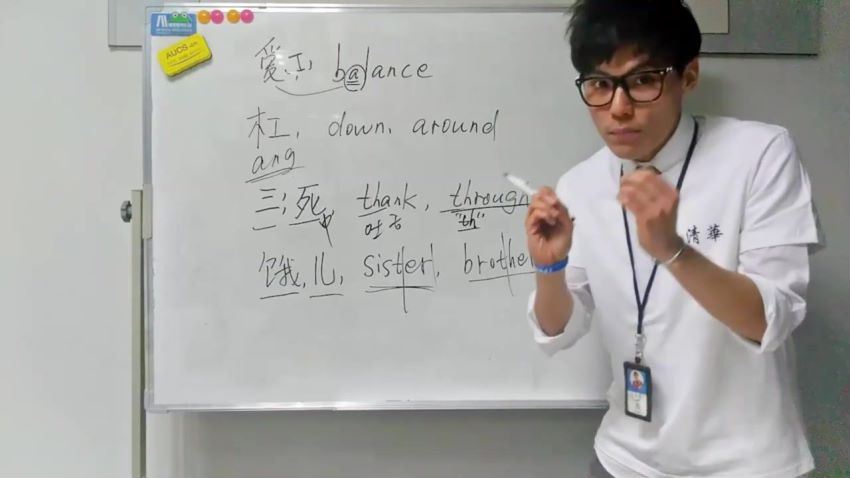 AUCS
爱,工, balance
杠, down, around
ang
三;死, thank, through
吐舌 "th"
饿,儿, sister, brothe
清華